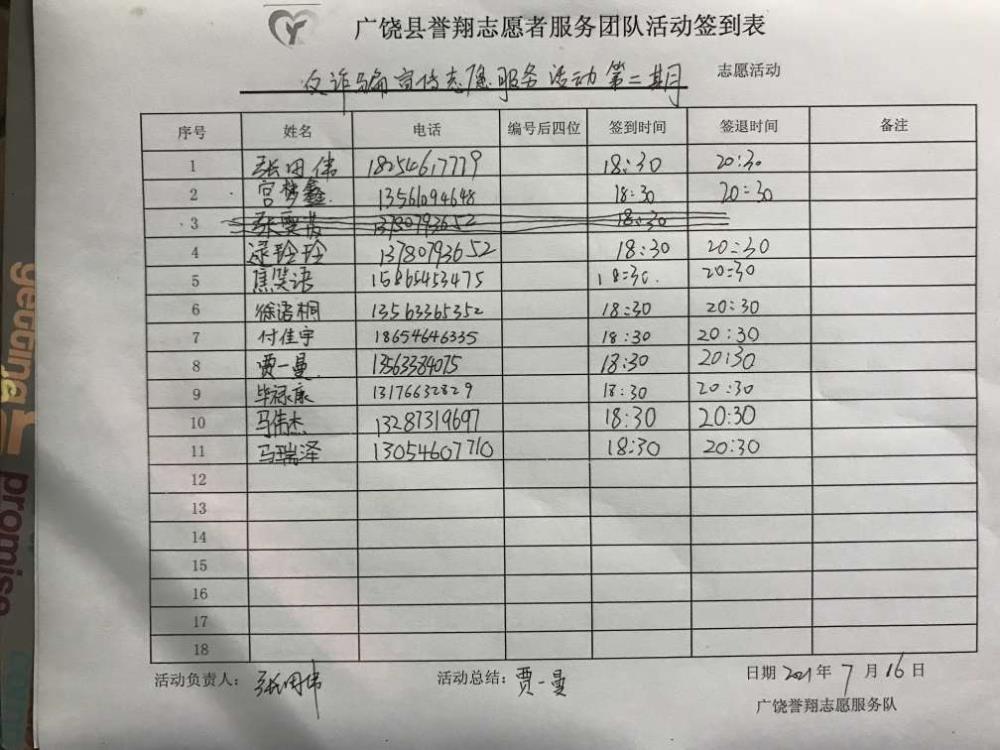 广饶县誉翔志愿者服务团队活动签到表
反诈骗宣传志愿服务活动第二期 志愿活动
序号 姓名 电话 编号后四位 签到时间 签退时间 备注
1 张田伟 18254617779 18:30 20:30
2 宫梦鑫 13561094648 18:30 20:30
3 13780793652 18:30
4 逯玲玲 13780793652 18:30 20:30
5 焦笑语 15865453475 18:30. 20:30
6 徐语桐 13563365352 18:30 20:30
7 付佳宇 18654646335 18:30 20:30
8 贾一曼 13563384075 18:30 20:30
9 毕禄康 13176632829 18:30 20:30
10 马伟杰 13287319697 18:30 20:30
11 马瑞泽 13054607710 18:30 20:30
12
13
14
15
16
17
18
活动负责人: 张田伟 活动总结: 贾一曼 日期 2021年 7 月 16 日
广饶誉翔志愿服务队
getting
promise